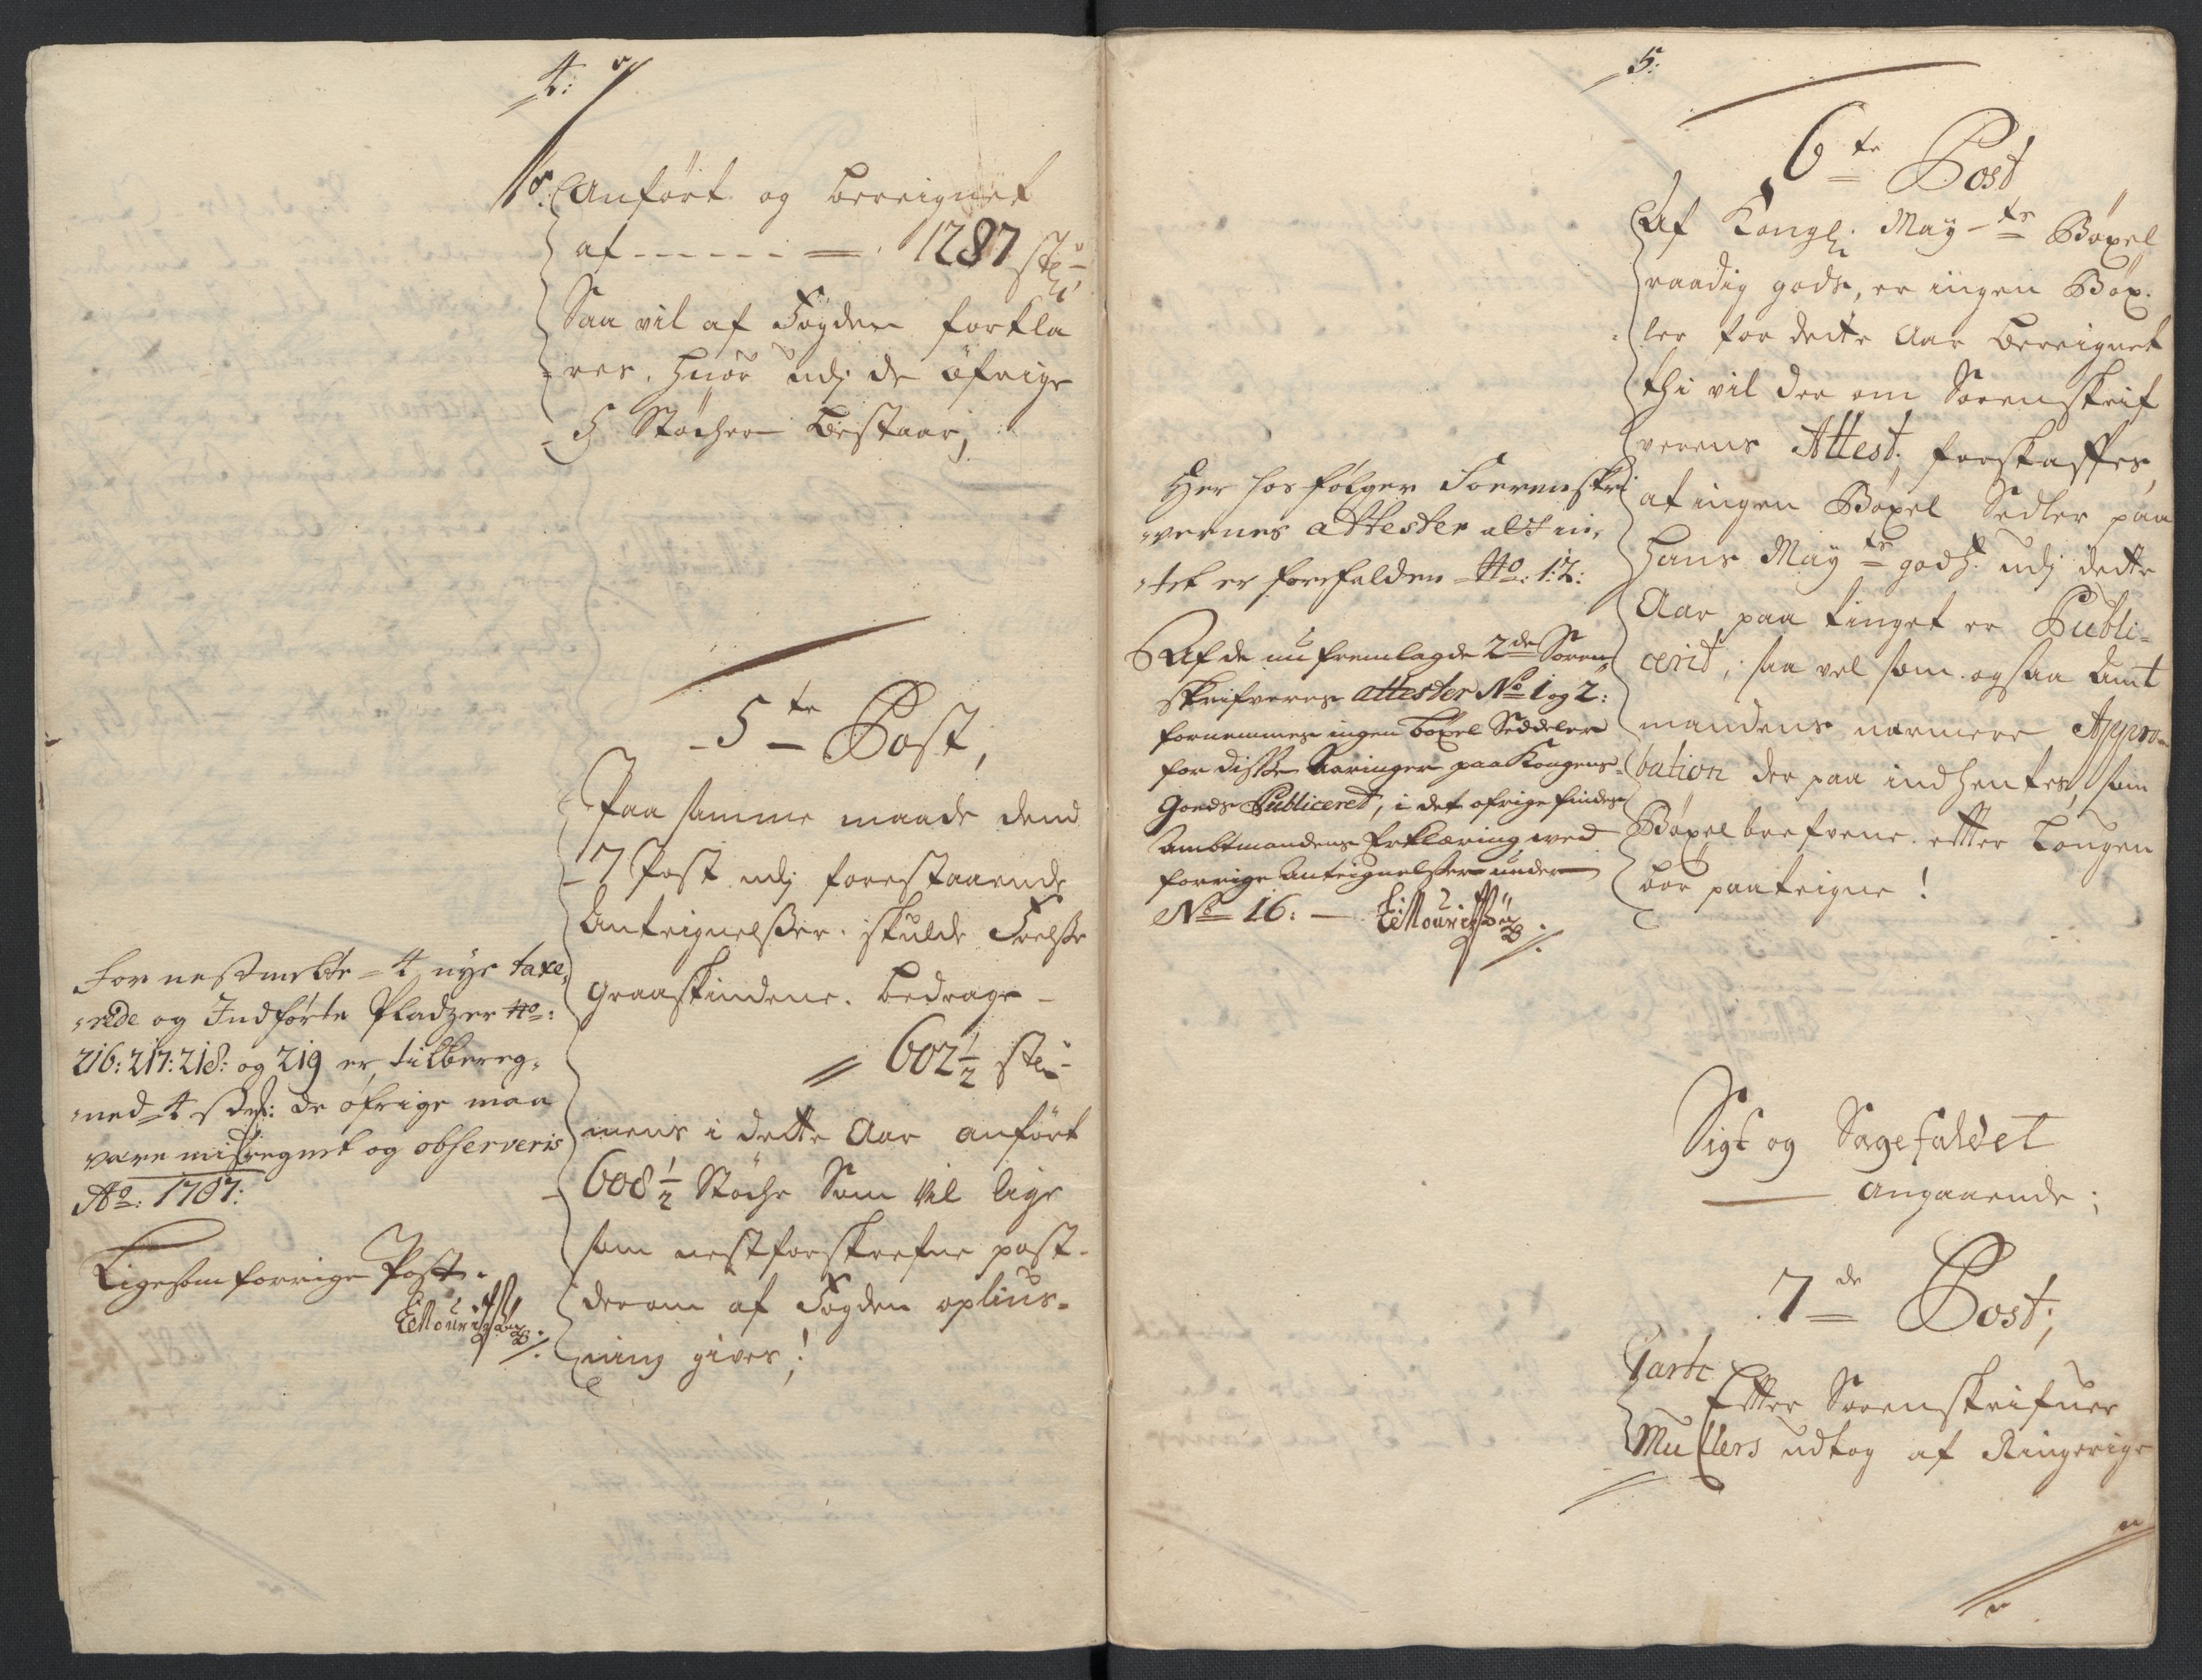 4:
Anfört og bereignet
af - - - - - - = 1287 ste
Saa vil af Fogden forkla
res, huor udj de öfrige
5 Stöcher bestaar;
5te Post,
Paa samme maade dend
7 Post udj forestaaende
Anteignelsser skulde
graaskindene bedrage
602½ ste
mens i dette Aar anfört
608½ Stöche Som vil lige
som nestforskrefne post
derom af Fogden oplius-
ning gives!
For nestmelte 4 nye taxe,
rede og Indførte Pladzer No:
216: 217: 218: og 219 er tilbereg,
ned 4 de øfrige maa
være misregnet og observeris
Ao: 1707:
Ligesom forrige Post.
5:
6te Post
Af Kongl: Mayts Böxel
raadig gods, er ingen Böx-
ler for dette Aar bereignet
thi vil der om Sorenskrif
verens Attest: forskaffes,
at ingen Böxel Sedler paa
Hans Mayts gods udj dette
Aar paa tinget er Publi-
cerit, saa vel som ogsaa Amt
mandens nærmere Appro-
bation der paa indhentes, som
Böxel brefvene efter Lougen
bör paateigne!
Her hos følger Sorenskri
vernes attester alt in,
tet er forefalden No: 1:2:
Af de nu fremlagde 2de Soren
skrifveres attester No 1 og 2:
fornemmes ingen böxel Seddeler
for disse Aaringer paa Kongens
Goeds Publiceret, i det øfrige findes
Ambtmandens Erklæring ved
forrige Anteignelsser under
No 16: —
Sigt og Sagefaldet
Angaaende;
7de Post;
Efter Sorenskrifuer
Mullers udtog af Ringerige